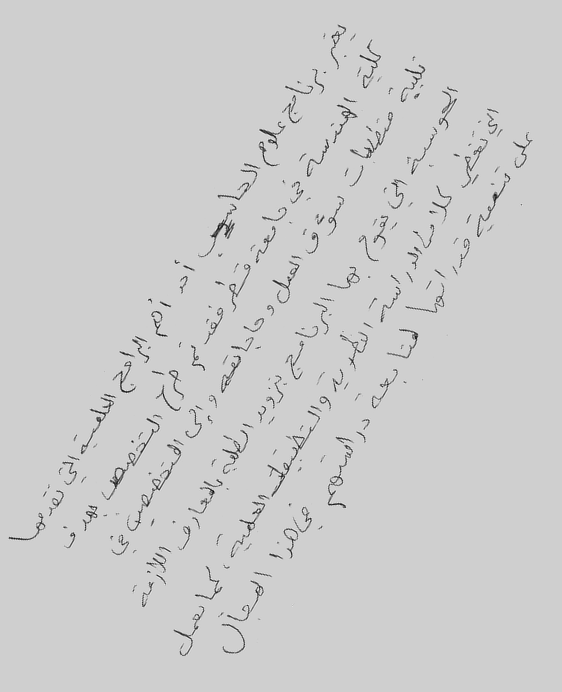 يعتبر برنامج علوم الحاسب أحد أهم البرامج العلمية التي تقدمها
كلية الهندسة في جامعة قطر فقد تم طرح التخصص بهدف
تلبية متطلبات سوق العمل وحاجاته وإلى المتخصصين في
الحوسبة التي يقوم بها البرنامج بتزويد الطلبة بالمعارف اللازمة
التي تغطي كلا من الدراسة النظرية والتطبيقات العملية، كما يعمل
على تنمية قدراتهم لمتابعة دراستهم في هذا المجال